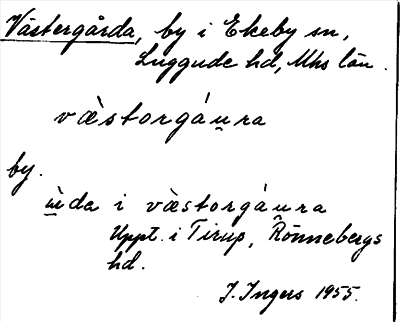 Västergårda, by i Ekeby sn,
Luggude hd, Mhs län.
væ̀storgáu̯ra
by.
ù̯da i væ̀storgáu̯ra
Uppt. i Tirup, Rönnebergs
hd.
J. Ingers 1955.